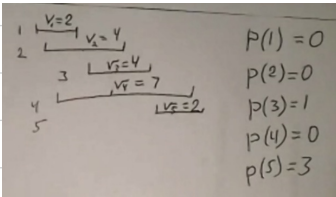 1 V₁=2
2 V₂=4
3 V₃=4
4 V₄=7
5 V₅=2
p(1)=0
p(2)=0
p(3)=1
p(4)=0
p(5)=3